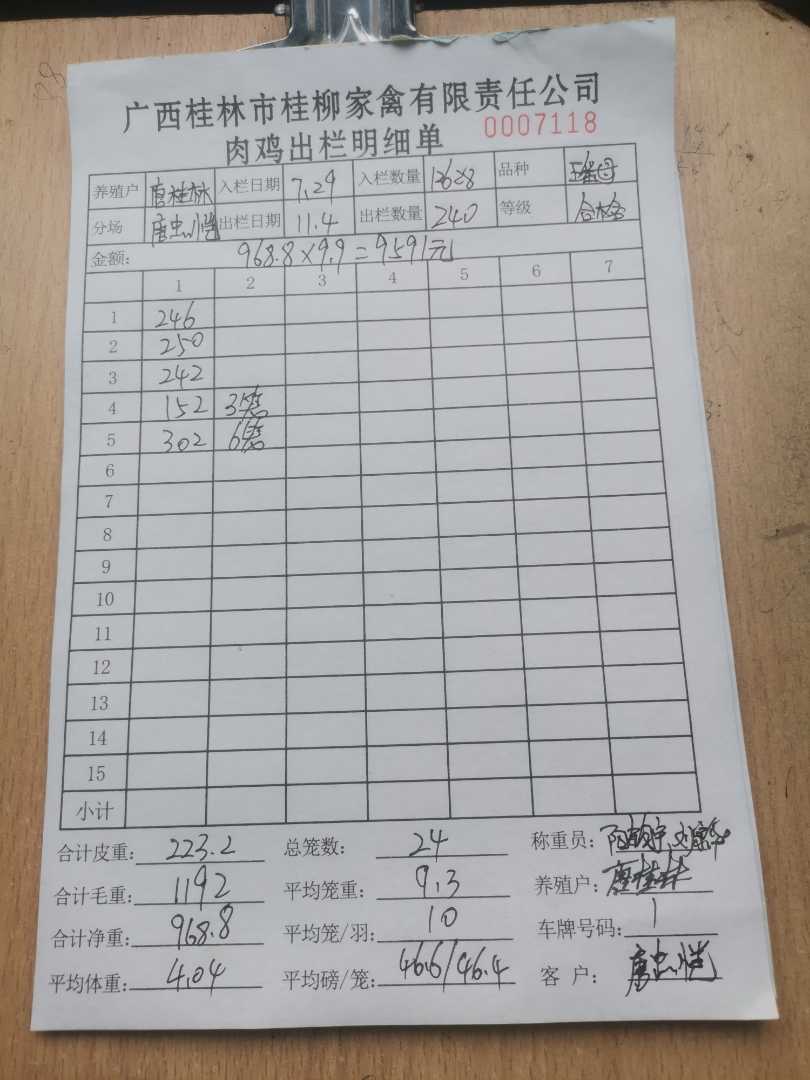 广西桂林市桂柳家禽有限责任公司
肉鸡出栏明细单 0007118
养殖户 唐桂林 入栏日期 7.29 入栏数量 12628 品种
分场 唐忠恺 出栏日期 11.4 出栏数量 240 等级 合格
金额: 968.8×9.9=9591元
1 2 3 4 5 6 7
1 246
2 250
3 242
4 152 3笼
5 302 6笼
6
7
8
9
10
11
12
13
14
15
小计
合计皮重: 223.2 总笼数: 24 称重员:
合计毛重: 1192 平均笼重: 9.3 养殖户: 唐桂林
合计净重: 968.8 平均笼/羽: 10 车牌号码: 1
平均体重: 4.04 平均磅/笼: 46.6/46.4 客户: 唐忠恺